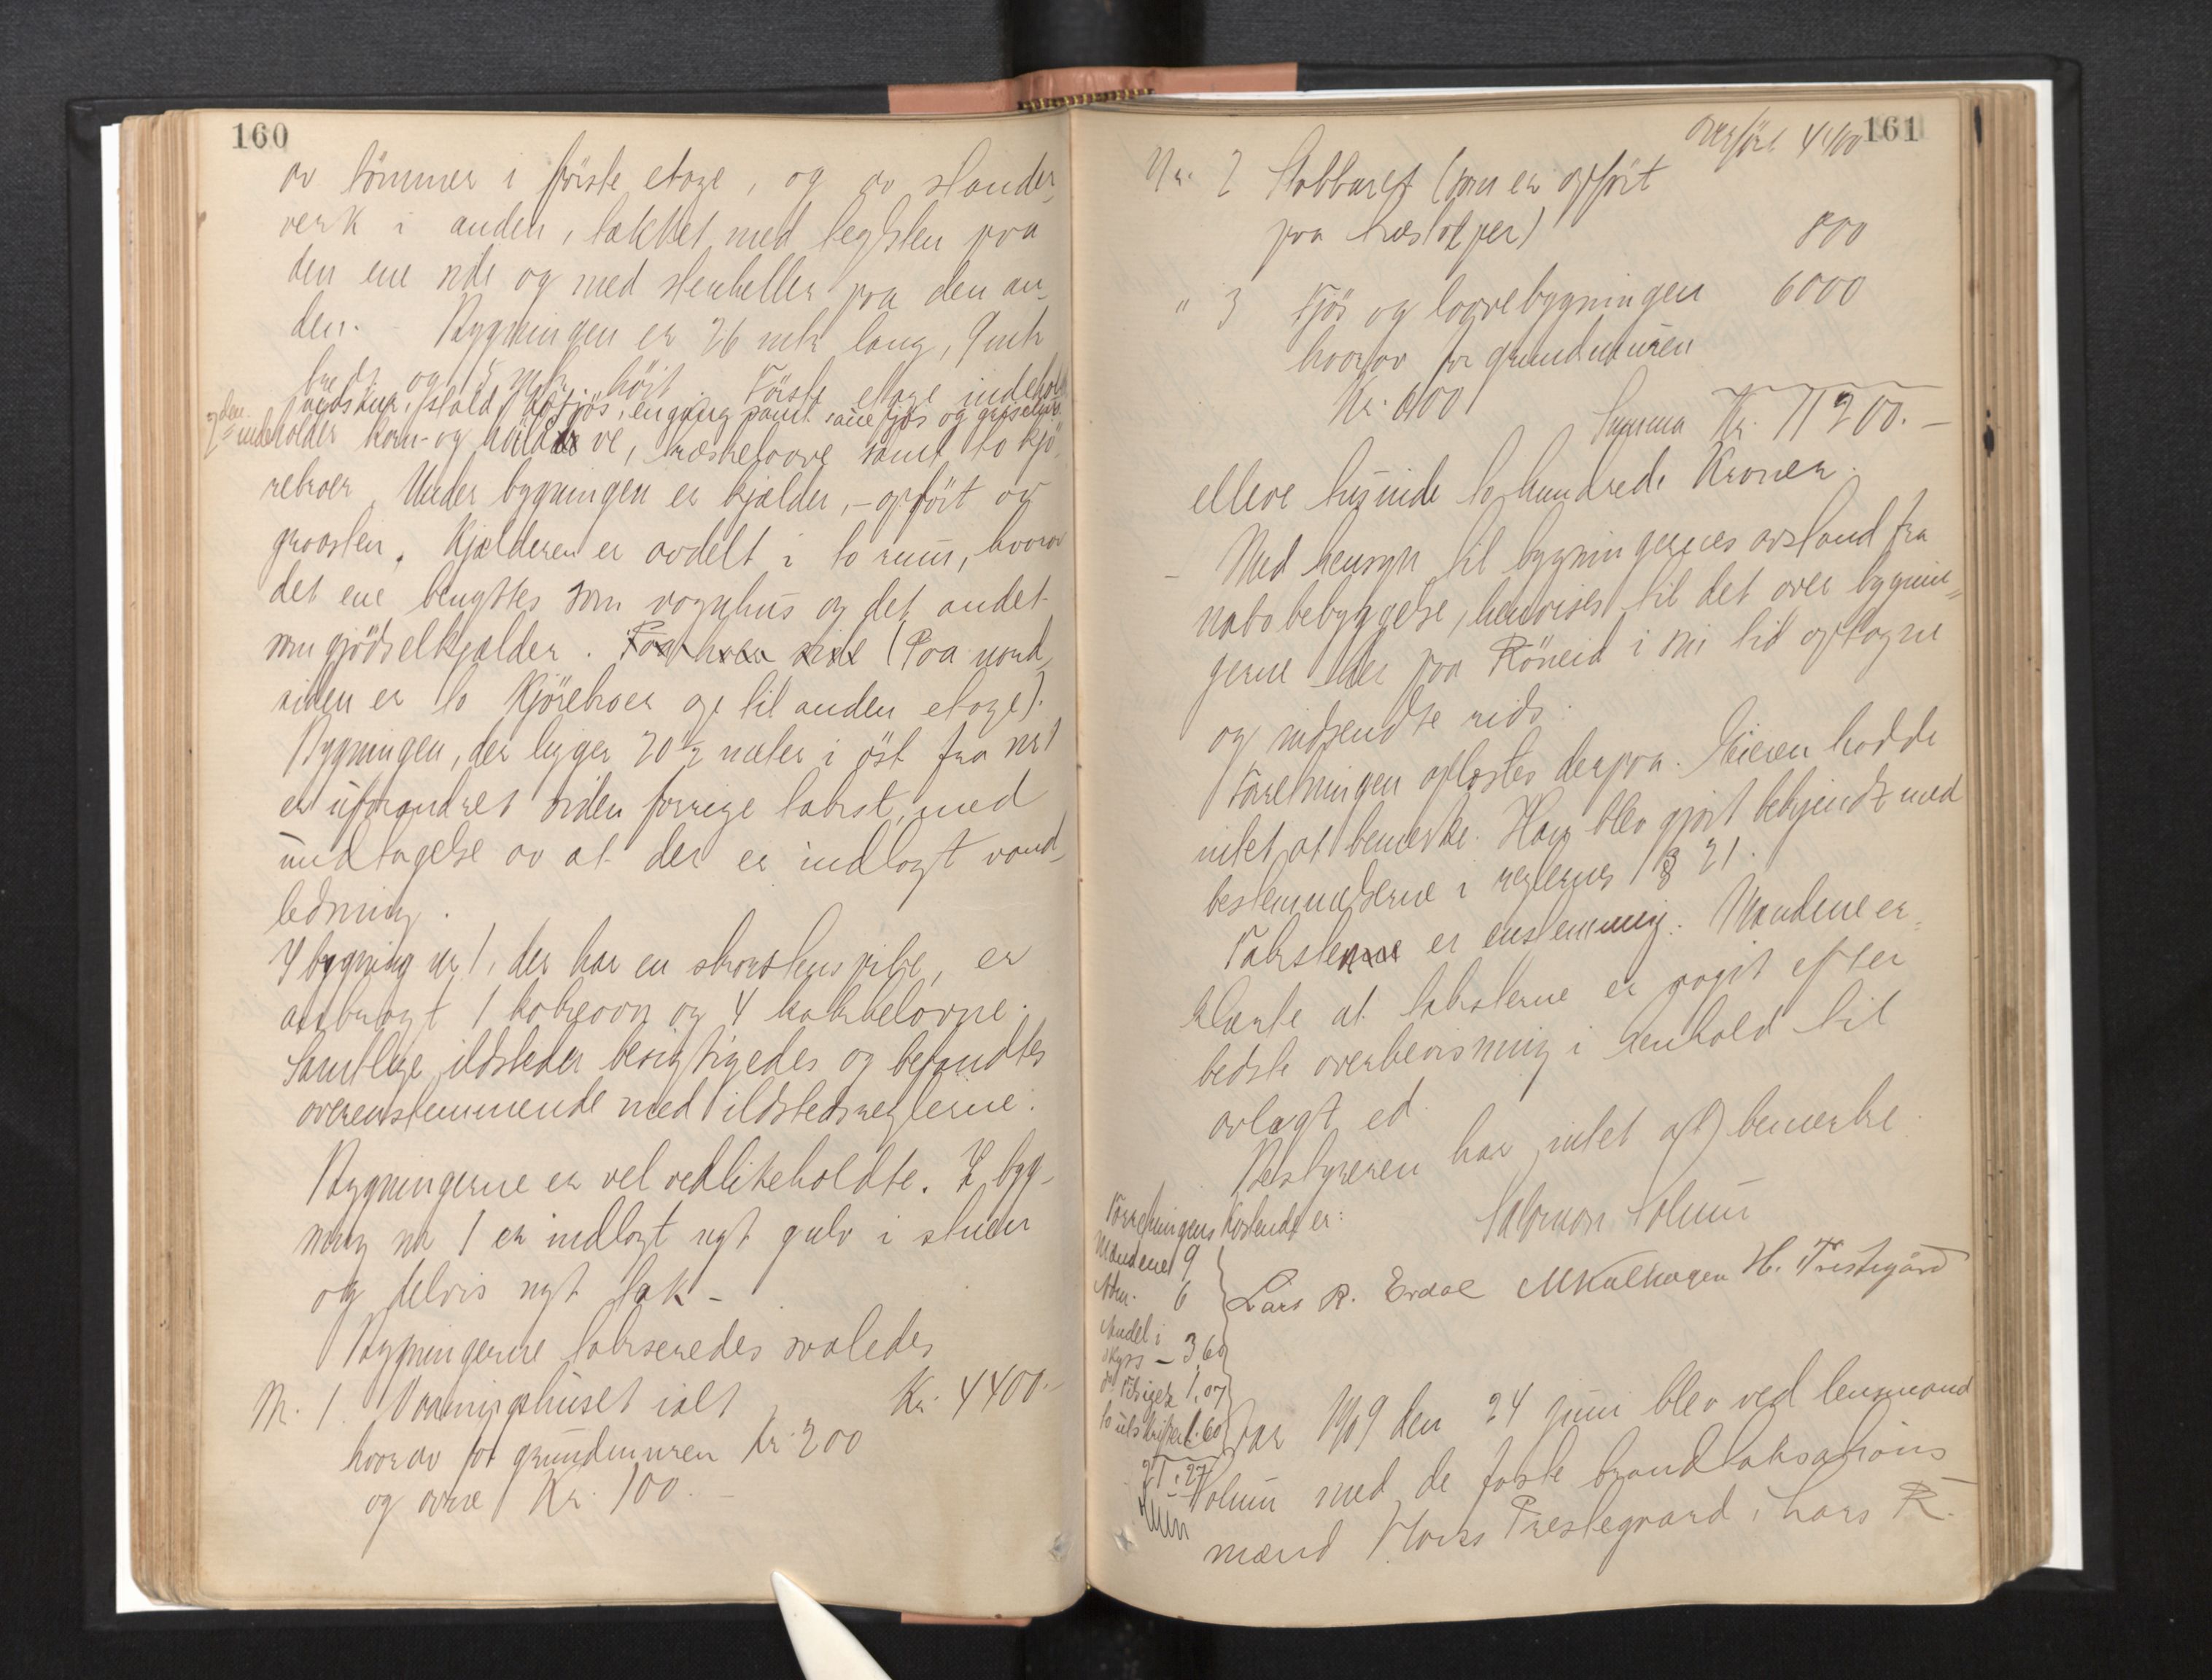 160
av tömmer i förste etage, og av stander,
verk i anden, tækket med teglsten paa
den ene side og med stenheller paa den an,
den. - Bygningen er 26 mtr lang, 9 mtr
bred og 5 mtr. höit. Förste etage indehol
stald, kofjös, engang samt sauefjös og grisehus.
2den indeholder korn- og ve, træskelaave samt to kjö,
rebroer. Under bygningen er kjælder, - opfört av
graasten. Kjælderen er avdelt i to rum, hvorav
det ene benyttes som vognhus og det andet
som gjödselkjælder. (Paa nord,
siden er to kjörebroer op til anden etage).
Bygningen, der ligger 20½ meter i öst fra nr 1
er uforandret siden forrige takst, med
undtagelse av at der er indlagt vand,
ledning.
I bygning nr 1, der har en skorstenspibe, er
anbragt 1 kokeovn og 4 kakkelovne.
Samtlige ildsteder besigtigedes og befandtes
overensstemmende med ildstedsreglerne.
Bygningerne er vel vedlikeholdte. I byg-
ning nr 1 er indlagt nyt gulv i stuen
og delvis nyt tak -
Bygningerne takseredes saaledes
Nr. 1. Vaaningshuset ialt Kr. 4400.-
hvorav for grundmuren kr. 200
og ovne Kr. 100. -
161
overfört 4400
Nr. 2 Stabburet (som er opfört
paa træstolper) 800
" 3 Fjös og laavebygningen 6000
hvorav for grundmuren
Kr. 600
Summa Kr. 11200. -
elleve tusinde to hundrede Kroner.
- Med hensyn til bygningernes avstand fra
nabobebyggelse, henvises til det over bygnin=
gerne her paa Röneid i sin tid optagne
og indsendte rids.
Forretningen oplæstes derpaa. Eieren hadde
intet at bemerke. Han blev gjort bekjendt med
bestemmelserne i reglernes § 21.
Taksten er enstemmig. Mændene er,
klærte at taksterne er avgit efter
bedste overbevisning i henhold til
avlagt ed.
Bestyreren har intet at bemerke.
Salomon Solum
Lars R. Erdal MKalhagen H. Prestegård
Forretningens kostende er:
Mændene 9
Adm. 6
Andel i
skyss - 3 60
1.07
to utskrifter 1.60
21.27
Aar 1909 den 24 juni blev ved lensmand
Solum med de faste brandtaksations
mænd Hans Prestegaard, Lars R.